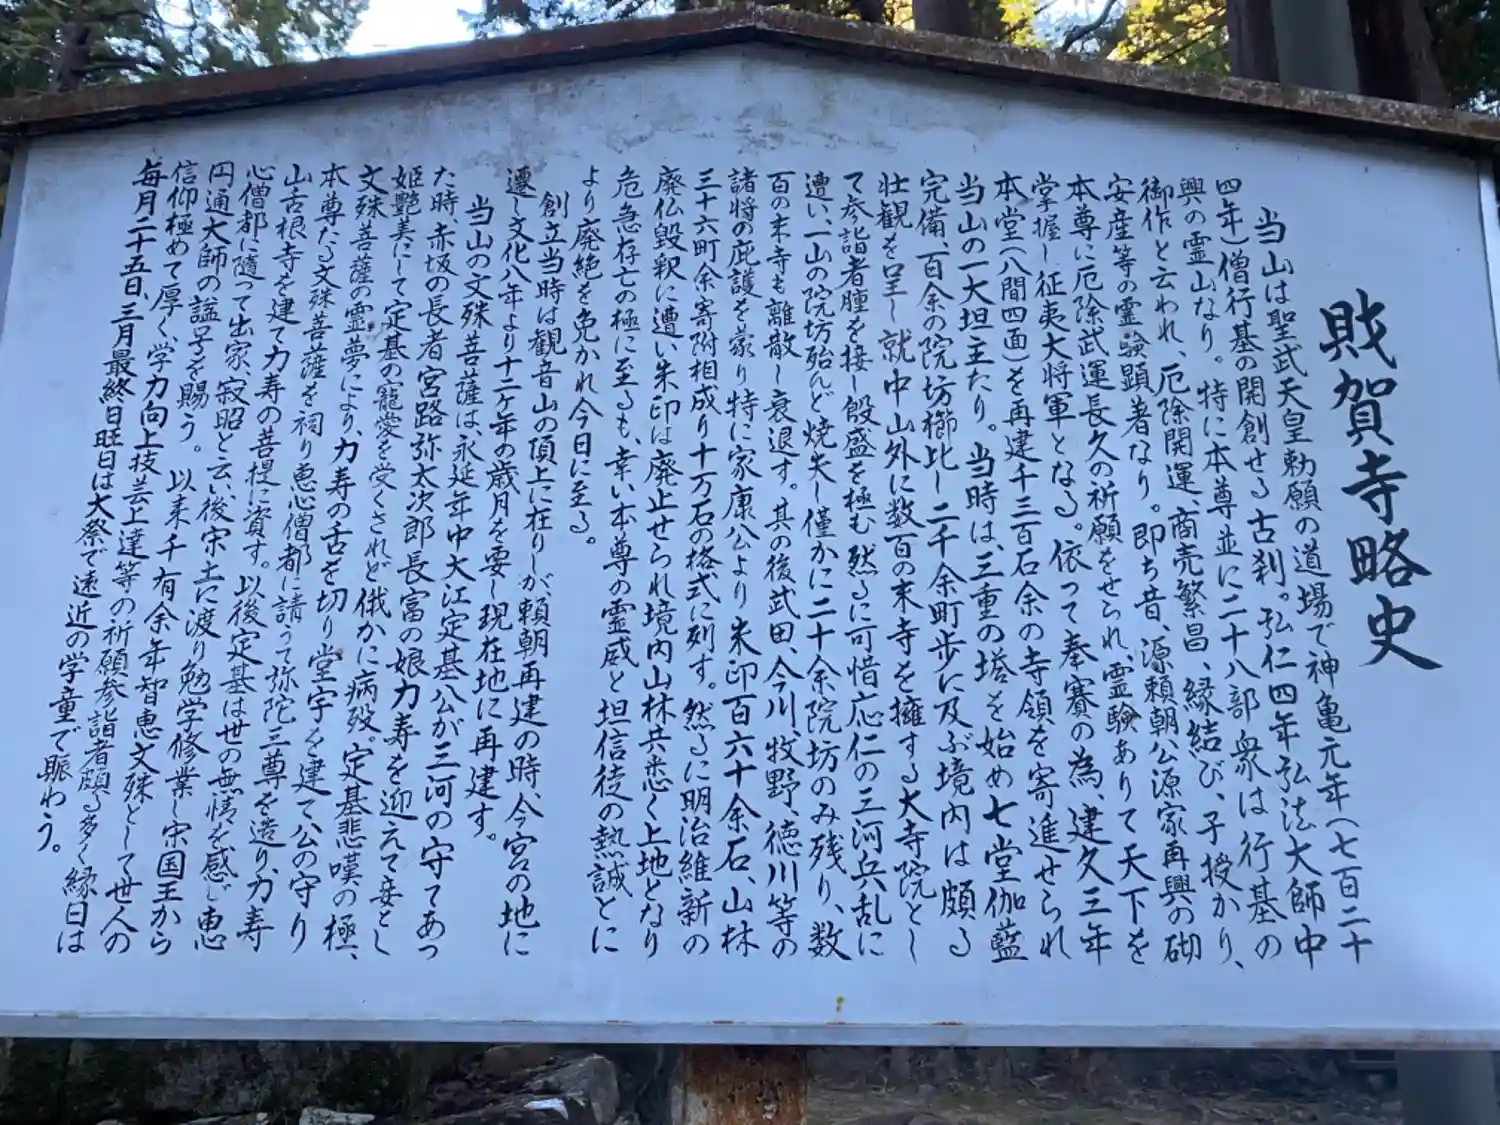 財賀寺略史
当山は聖武天皇勅願の道場で神亀元年(七百二十
四年)僧行基の開創せる古刹。弘仁四年弘法大師中
興の霊山なり。特に本尊並に二十八部衆は行基の
御作と云われ、厄除開運、商売繁昌、縁結び、子授かり、
安産等の霊験顕著なり。即ち昔、源頼朝公源家再興の砌
本尊に厄除武運長久の祈願をせられ、霊験ありて天下を
掌握し征夷大将軍となる。依って奉賽の為、建久三年
本堂(八間四面)を再建千三百石余の寺領を寄進せられ
当山の一大坦主たり。当時は、三重の塔を始め七堂伽藍
完備、百余の院坊櫛比し二千余町歩に及ぶ境内は頗る
壮観を呈し就中山外に数百の末寺を擁する大寺院とし
て参詣者腫を接し殷盛を極む然るに可惜応仁の三河兵乱に
遭い、一山の院坊殆んど焼失し僅かに二十余院坊のみ残り、数
百の末寺も離散し衰退す。其の後武田、今川、牧野、徳川等の
諸将の庇護を蒙り特に家康公より朱印百六十余石、山林
三十六町余寄附相成り十万石の格式に列す。然るに明治維新の
廃仏毀釈に遭い朱印は廃止せられ境内山林共悉く上地となり
危急存亡の極に至るも、幸い本尊の霊威と坦信徒の熱誠とに
より廃絶を免かれ今日に至る。
創立当時は観音山の頂上に在りしが頼朝再建の時、今宮の地に
遷し文化八年より十二ケ年の歳月を要し現在地に再建す。
当山の文殊菩薩は、永延年中大江定基公が三河の守てあっ
た時、赤坂の長者宮路弥太次郎長富の娘力寿を迎えて妾とし
姫艶美にして定基の寵愛を受くされど俄かに病歿、定基悲嘆の極、
文殊菩薩の霊夢により、力寿の舌を切り堂宇を建て公の守り
本尊たる文殊菩薩を祠り恵心僧都に請うて弥陀三尊を造り、力寿
山舌根寺を建て力寿の菩提に資す。以後定基は世の無情を感じ恵
心僧都に隨って出家、寂昭と云い、後宋土に渡り勉学修業し宋国王から
円通大師の諡号を賜う。以来千有余年智恵文殊として世人の
信仰極めて厚く、学力向上技芸上達等の祈願参詣者頗る多く縁日は
毎月二十五日、三月最終日旺日は大祭で遠近の学童で賑わう。